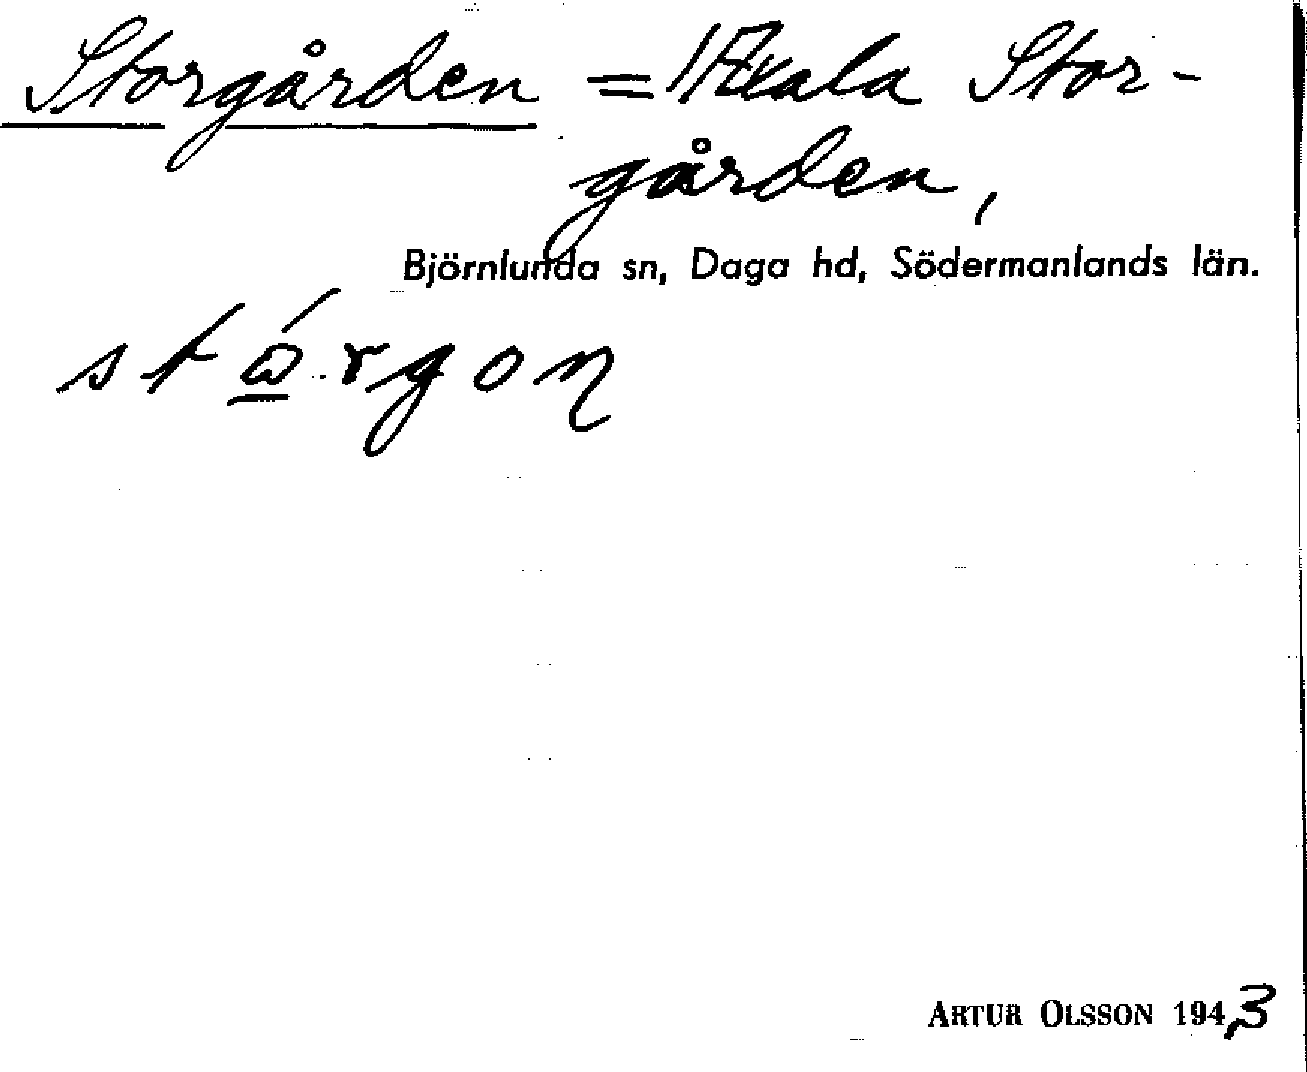 Storgården = Axala Stor-
gården,
Björnlunda sn, Daga hd, Södermanlands län.
ARTUR OLSSON 1943